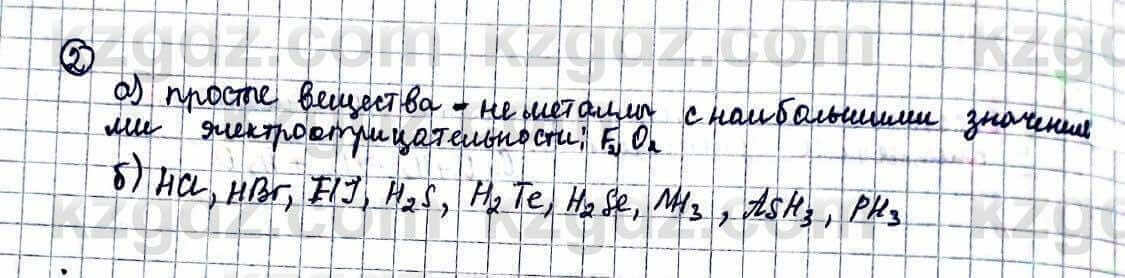 ②
а) простые вещества - неметаллы с наибольшими значения
ми электроотрицательности: F₂ O₂
б) HCl, HBr, HJ, H₂S, H₂Te, H₂Se, NH₃, AsH₃, PH₃
kzgdz.com kzgdz.com kzgdz